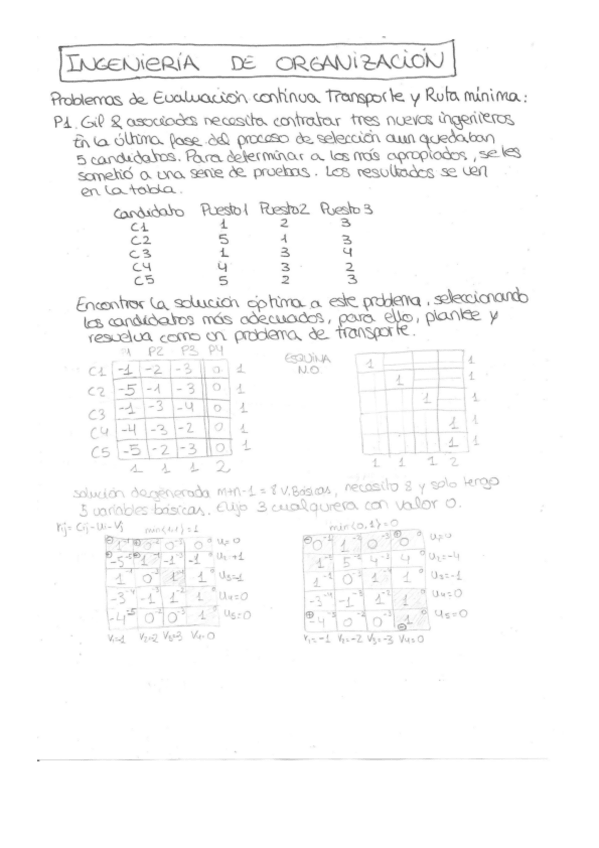 INGENIERÍA DE ORGANIZACIÓN
Problemas de Evaluación continua Transporte y Ruta mínima:
P1. Gil & asociados necesita contratar tres nuevos ingenieros
En la última fase del proceso de selección aun quedaban
5 candidatos. Para determinar a los más apropiados, se les
sometió a una serie de pruebas. Los resultados se ven
en la tabla.
Candidato Puesto1 Puesto2 Puesto 3
C1 1 2 3
C2 5 1 3
C3 1 3 4
C4 4 3 2
C5 5 2 3
Encontrar la solución óptima a este problema, seleccionando
los candidatos más adecuados, para ello, plantee y
resuelva como un problema de transporte.
1 P2 P3 P4
C1 -1 -2 -3 0 1
C2 -5 -1 -3 0 1
C3 -1 -3 -4 0 1
C4 -4 -3 -2 0 1
C5 -5 -2 -3 0 1
1 1 1 2
ESQUINA
N.O
1 1
1 1
1 1
1 1
1 1
1 1 1 2
solución degenerada m+n-1 = 8 V. Básicas, necesito 8 y solo tengo
5 variables básicas. Elijo 3 cualquiera con valor 0.
rij = Cij - Ui - Vj
min(1,1)=1
U1=0
U3=-1
U4=0
U5=0
V1=-1 V2=-2 V3=-3 V4=0
min(0,1)=0
U1=0
U2=-4
U3=-1
U4=0
U5=0
V1=-1 V2=-2 V3=-3 V4=0